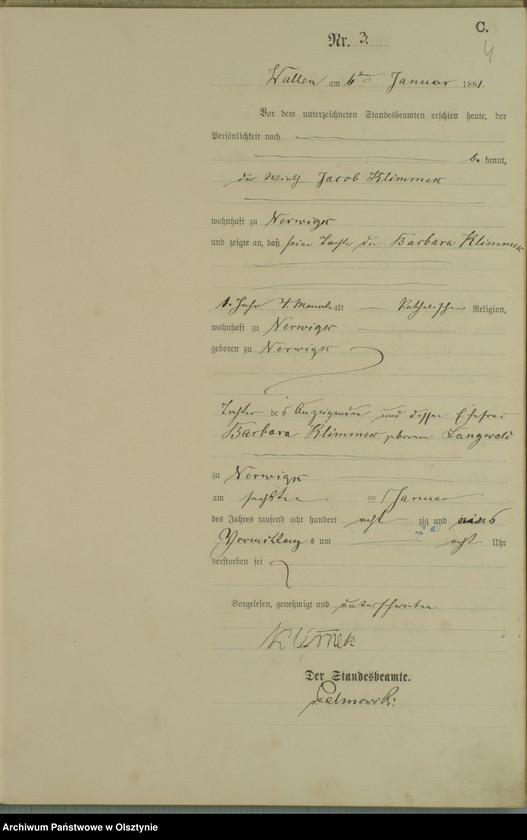 C.
4
Nr. 3.
Wallen am 6ten Januar 1881.
Vor dem unterzeichneten Standesbeamten erschien heute, der
Persönlichkeit nach
be kannt,
der Wirth Jacob Klimmek
wohnhaft zu Nerwigk
und zeigte an, daß seine Tochter die Barbara Klimmek
1. Jahr 4. Monat alt Katholischer Religion,
wohnhaft zu Nerwigk
geboren zu Nerwigk
Tochter des Anzeigenden und dessen Ehefrau
Barbara Klimmek geborene Langwald
zu Nerwigk
am sechsten Januar
des Jahres tausend acht hundert acht zig und eins
Vormittags um acht Uhr
verstorben sei
Vorgelesen, genehmigt und unterschrieben
Klimek
Der Standesbeamte.
Palmowski
Archiwum Państwowe w Olsztynie